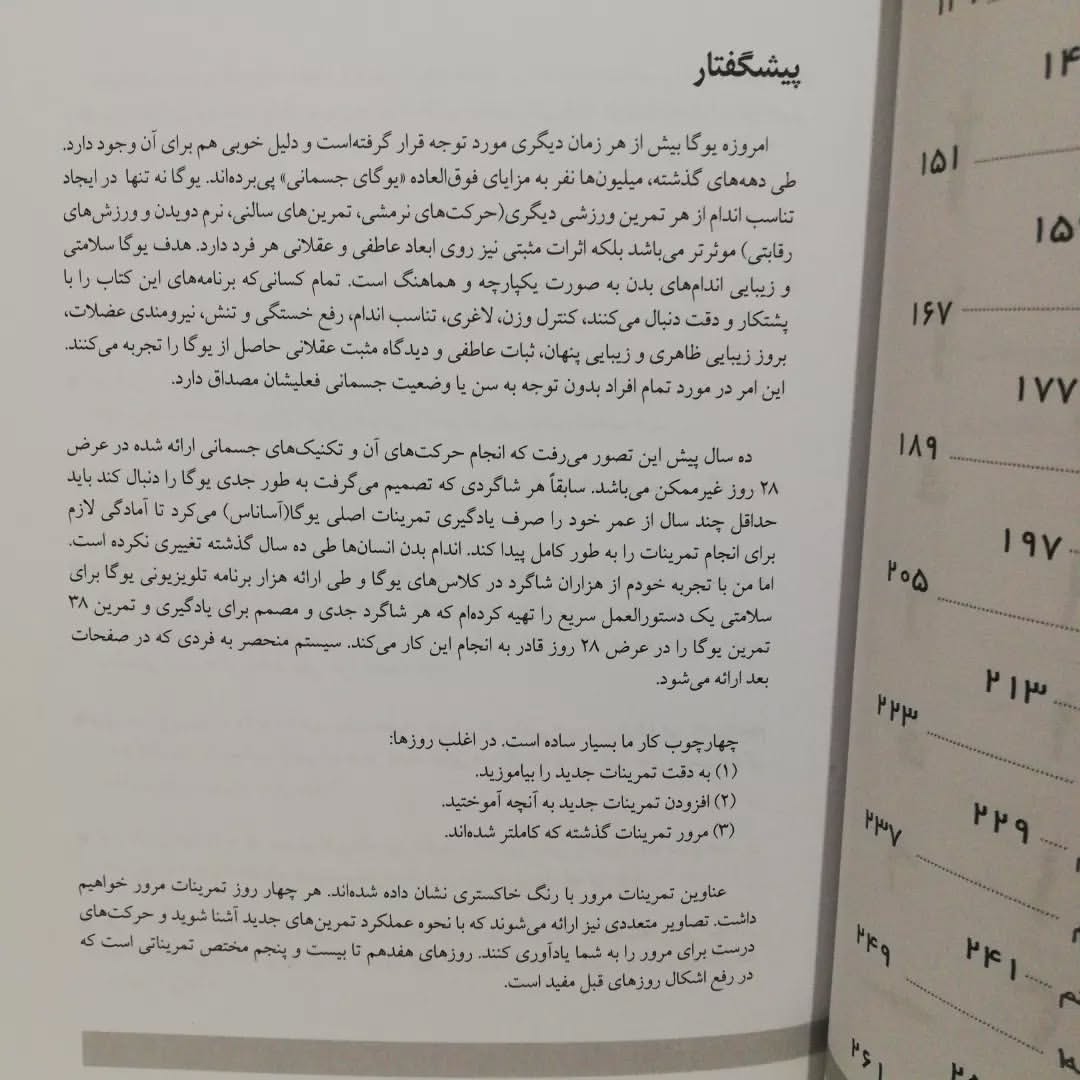 پیشگفتار
امروزه یوگا بیش از هر زمان دیگری مورد توجه قرار گرفته‌است و دلیل خوبی هم برای آن وجود دارد.
طی دهه‌های گذشته، میلیون‌ها نفر به مزایای فوق‌العاده «یوگای جسمانی» پی‌برده‌اند. یوگا نه تنها در ایجاد
تناسب اندام از هر تمرین ورزشی دیگری(حرکت‌های نرمشی، تمرین‌های سالنی، نرم دویدن و ورزش‌های
رقابتی) موثرتر می‌باشد بلکه اثرات مثبتی نیز روی ابعاد عاطفی و عقلانی هر فرد دارد. هدف یوگا سلامتی
و زیبایی اندام‌های بدن به صورت یکپارچه و هماهنگ است. تمام کسانی‌که برنامه‌های این کتاب را با
پشتکار و دقت دنبال می‌کنند، کنترل وزن، لاغری، تناسب اندام، رفع خستگی و تنش، نیرومندی عضلات،
بروز زیبایی ظاهری و زیبایی پنهان، ثبات عاطفی و دیدگاه مثبت عقلانی حاصل از یوگا را تجربه می‌کنند.
این امر در مورد تمام افراد بدون توجه به سن یا وضعیت جسمانی فعلیشان مصداق دارد.
ده سال پیش این تصور می‌رفت که انجام حرکت‌های آن و تکنیک‌های جسمانی ارائه شده در عرض
۲۸ روز غیرممکن می‌باشد. سابقاً هر شاگردی که تصمیم می‌گرفت به طور جدی یوگا را دنبال کند باید
حداقل چند سال از عمر خود را صرف یادگیری تمرینات اصلی یوگا(آساناس) می‌کرد تا آمادگی لازم
برای انجام تمرینات را به طور کامل پیدا کند. اندام بدن انسان‌ها طی ده سال گذشته تغییری نکرده است.
اما من با تجربه خودم از هزاران شاگرد در کلاس‌های یوگا و طی ارائه هزار برنامه تلویزیونی یوگا برای
سلامتی یک دستورالعمل سریع را تهیه کرده‌ام که هر شاگرد جدی و مصمم برای یادگیری و تمرین ۳۸
تمرین یوگا را در عرض ۲۸ روز قادر به انجام این کار می‌کند. سیستم منحصر به فردی که در صفحات
بعد ارائه می‌شود.
چهارچوب کار ما بسیار ساده است. در اغلب روزها:
(۱) به دقت تمرینات جدید را بیاموزید.
(۲) افزودن تمرینات جدید به آنچه آموختید.
(۳) مرور تمرینات گذشته که کاملتر شده‌اند.
عناوین تمرینات مرور با رنگ خاکستری نشان داده شده‌اند. هر چهار روز تمرینات مرور خواهیم
داشت. تصاویر متعددی نیز ارائه می‌شوند که با نحوه عملکرد تمرین‌های جدید آشنا شوید و حرکت‌های
درست برای مرور را به شما یادآوری کنند. روزهای هفدهم تا بیست و پنجم مختص تمریناتی است که
در رفع اشکال روزهای قبل مفید است.
۱۵۱
۱۶۷
۱۷۷
۱۸۹
۱۹۷
۲۰۵
۲۱۳
۲۲۳
۲۲۹
۲۳۷
۲۴۱
۲۴۹
۲۶۱